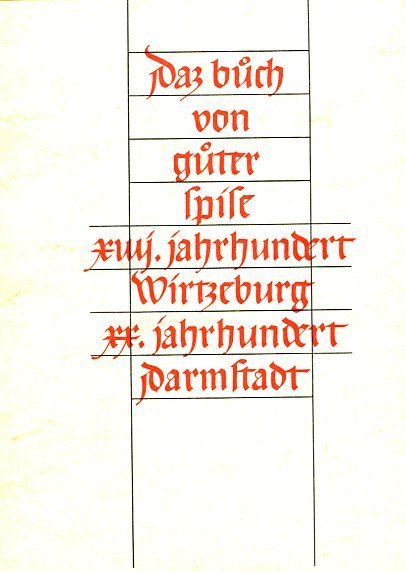 Daz bůch
von
gůter
ſpiſe
xiiij. jahrhundert
Wirtzeburg
xx. jahrhundert
Darmſtadt